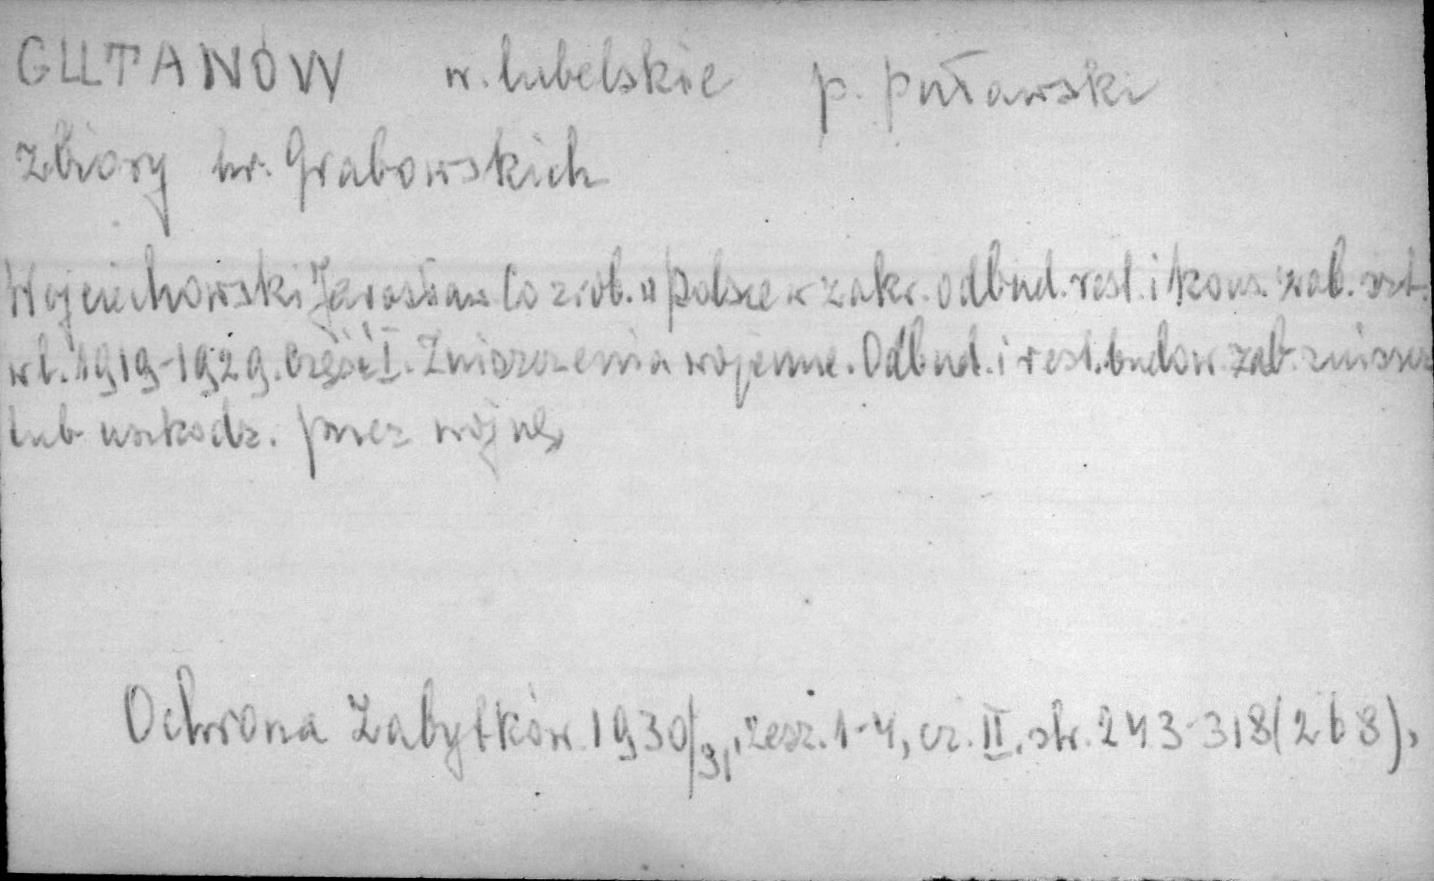 GUTANÓW w. lubelskie p. puławski
Zbiory hr. Grabowskich
Wojciechowski Jarosław Co zrob. w Polsce w zakr. odbud. rest. i kons. zab. szt.
w l. 1919-1929. Część I. Zniszczenia wojenne. Odbud. i rest. budow. zab. zniszcz
lub uszkodz. przez wojnę
Ochrona Zabytków 1930/31, zesz. 1-4, cz. II. str. 243-318 (268),